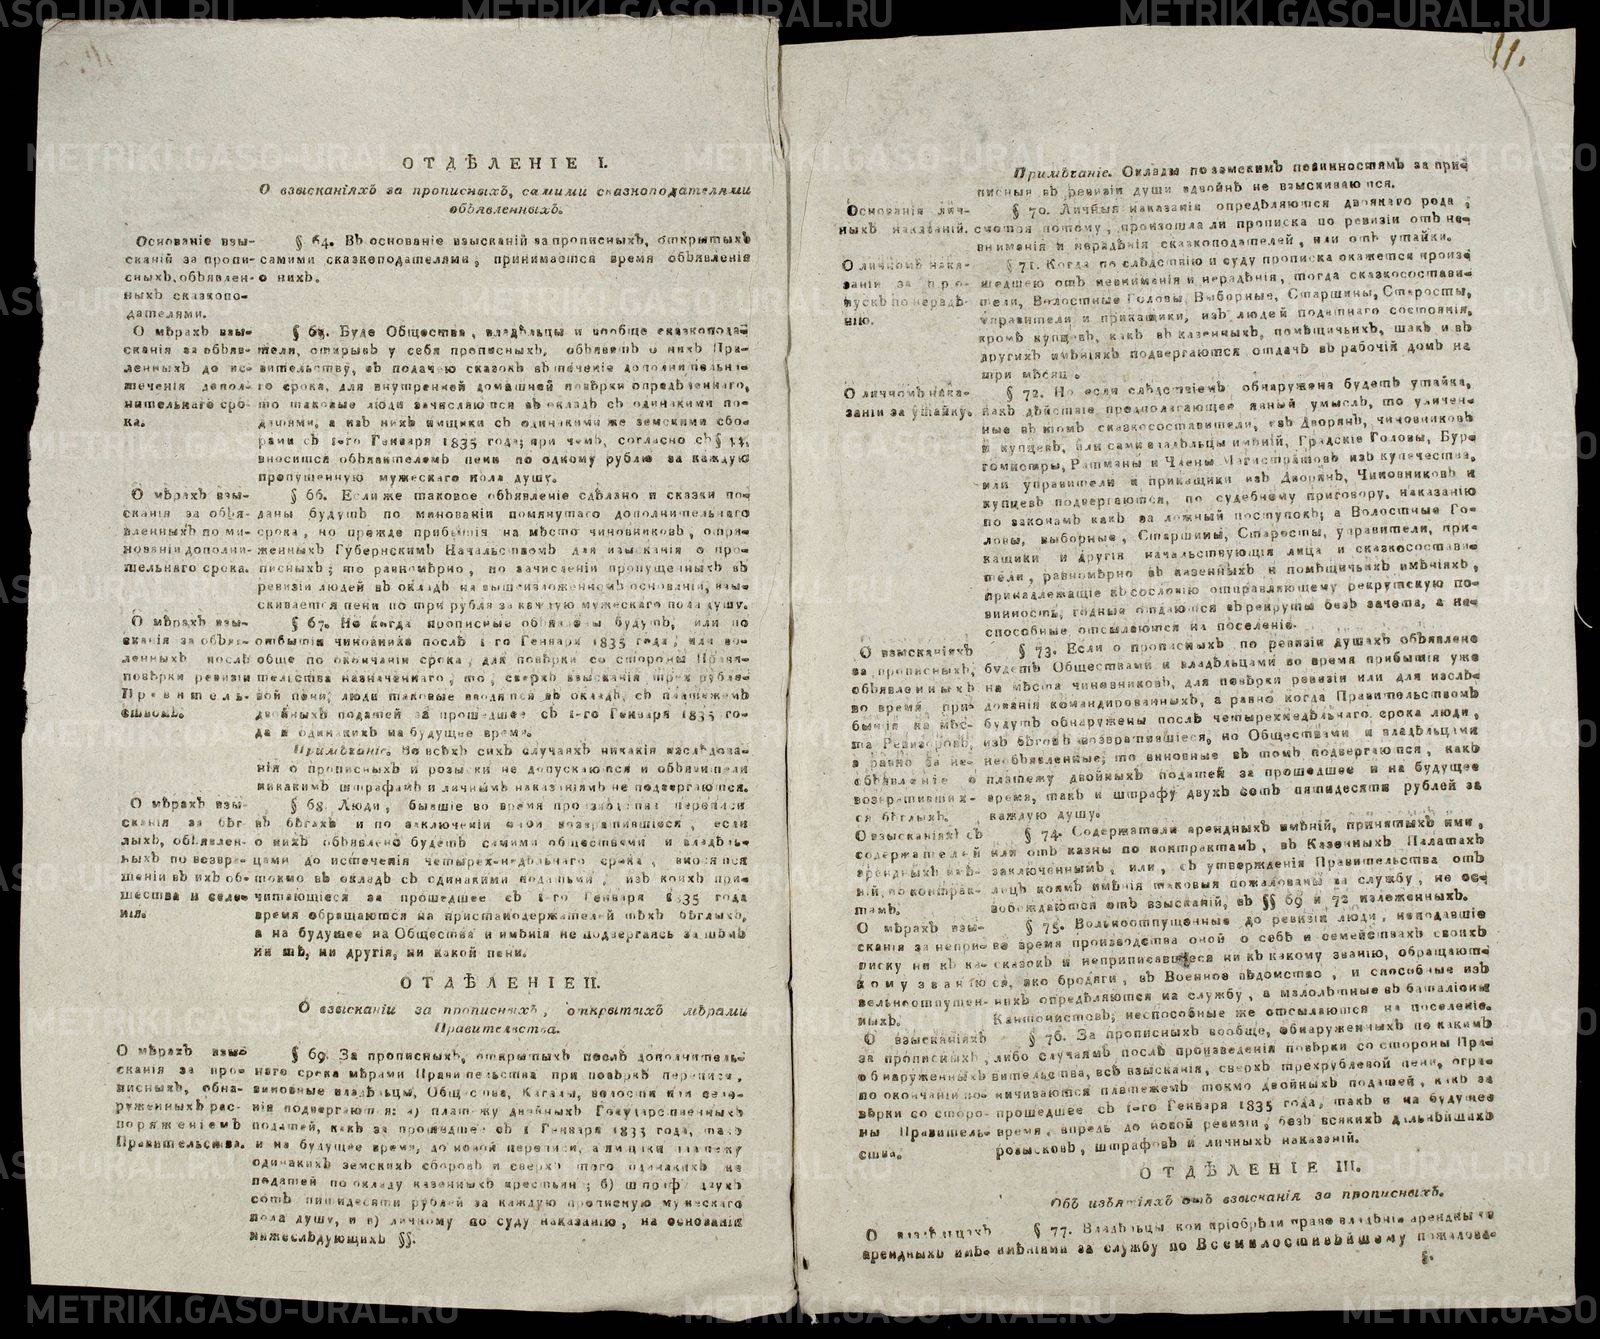 ОТДѢЛЕНІЕ I.
О взысканіяхъ за прописныхъ, самими сказкоподателями
объявленныхъ.
Основаніе взы-
сканій за пропи-
сныхъ, объявлен-
ныхъ сказкопо-
дателями.
§ 64. Въ основаніе взысканій за прописныхъ, открытыхъ
самими сказкоподателями, принимается время объявленія
о нихъ.
О мѣрахъ взы-
сканія за объяв-
ленныхъ до ис-
теченія допол-
нительнаго сро-
ка.
§ 65. Буде Общества, владѣльцы и вообще сказкопода-
тели, открывъ у себя прописныхъ, объявятъ о нихъ Пра-
вительству, съ подачею сказокъ въ теченіе дополнительна-
го срока, для внутренней домашней повѣрки опредѣленнаго,
то таковые люди зачисляются въ окладъ съ одинакими по-
датями, а изъ нихъ ямщики съ одинакими же земскими сбо-
рами съ 1-го Генваря 1835 года; при чемъ, согласно съ §
вносится объявителемъ пени по одному рублю за каждую
пропущенную мужескаго пола душу.
О мѣрахъ взы-
сканія за объя-
вленныхъ по ми-
нованіи дополни-
тельнаго срока.
§ 66. Если же таковое объявленіе сдѣлано и сказки по-
даны будутъ по минованіи помянутаго дополнительнаго
срока, но прежде прибытія на мѣсто чиновниковъ, отря-
женныхъ Губернскимъ Начальствомъ для изысканія о про-
писныхъ; то равномѣрно, по зачисленіи пропущенныхъ въ
ревизіи людей въ окладъ на вышеизложенномъ основаніи, взы-
скивается пени по три рубля за каждую мужескаго пола душу.
О мѣрахъ взы-
сканія за объяв-
ленныхъ послѣ
повѣрки ревизіи
Правитель-
ствомъ.
§ 67. Но когда прописные объявлены будутъ, или по
отбытіи чиновника послѣ 1-го Генваря 1835 года, или во-
обще по окончаніи срока, для повѣрки со стороны Прави-
тельства назначеннаго, то, сверхъ взысканія трех рубле-
вой пени, люди таковые вводятся въ окладъ, съ платежемъ
двойныхъ податей за прошедшее съ 1-го Генваря 1835 го-
да и одинакихъ на будущее время.
Примѣчаніе. Во всѣхъ сихъ случаяхъ никакія изслѣдова-
нія о прописныхъ и розыски не допускаются и объявители
никакимъ штрафамъ и личнымъ наказаніямъ не подвергаются.
О мѣрахъ взы-
сканія за бѣг-
лыхъ, объявлен-
ныхъ по возвра-
щеніи въ ихъ об-
щества и селе-
нія.
§ 68. Люди, бывшіе во время производства переписи
въ бѣгахъ и по заключеніи оной возвратившіеся, если
о нихъ объявлено будетъ самими обществами и владѣль-
цами до истеченія четырех-недѣльнаго срока, вносятся
токмо въ окладъ съ одинакими податьми, изъ коихъ при-
читающіеся за прошедшее съ 1-го Генваря 1835 года
время обращаются на пристанодержателей тѣхъ бѣглыхъ,
а на будущее на Общества и имѣнія не подвергаясь за тѣмъ
ни тѣ, ни другія, ни какой пени.
ОТДѢЛЕНІЕ II.
О взысканіи за прописныхъ, открытыхъ мѣрами
Правительства.
О мѣрахъ взы-
сканія за про-
писныхъ, обна-
руженныхъ рас-
поряженіемъ
Правительства.
§ 69. За прописныхъ, открытыхъ послѣ дополнитель-
наго срока мѣрами Правительства при повѣркѣ переписи,
виновные владѣльцы, Общества, Кагалы, волости или селе-
нія подвергаются: а) платежу двойныхъ Государственныхъ
податей, какъ за прошедшее съ 1 Генваря 1835 года, такъ
и на будущее время, до новой переписи, а ямщики платежу
одинакихъ земскихъ сборовъ и сверхъ того одинакихъ же
податей по окладу казенныхъ крестьянъ; б) штрафу двухъ
сотъ пятидесяти рублей за каждую прописную мужескаго
пола душу, и в) личному по суду наказанію, на основаніи
нижеслѣдующихъ §§.
11.
Примѣчаніе. Оклады по земскимъ повинностямъ за про-
писныя въ ревизіи души вдвойнѣ не взыскиваются.
Основанія лич-
ныхъ наказаній.
§ 70. Личныя наказанія опредѣляются двоякаго рода;
смотря потому, произошла ли прописка по ревизіи отъ не-
вниманія и нерадѣнія сказкоподателей, или отъ утайки.
О личномъ нака-
заніи за про-
пускъ по нерадѣ-
нію.
§ 71. Когда по слѣдствію и суду прописка окажется произо-
шедшею отъ невниманія и нерадѣнія, тогда сказкосостави-
тели, Волостные Головы, Выборные, Старшины, Старосты,
управители и прикащики, изъ людей податнаго состоянія,
кромѣ купцовъ, какъ въ казенныхъ, помѣщичьихъ, такъ и въ
другихъ имѣніяхъ подвергаются отдачѣ въ рабочій домъ на
три мѣсяца.
О личномъ нака-
заніи за утайку.
§ 72. Но если слѣдствіемъ обнаружена будетъ утайка,
какъ дѣйствіе предполагающее явный умыселъ, то уличен-
ные въ томъ сказкосоставители, изъ Дворянъ, чиновниковъ
и купцовъ, или сами владѣльцы имѣній, Градскіе Головы, Бур-
гомистры, Ратманы и Члены Магистратовъ изъ купечества,
или управители и прикащики изъ Дворянъ, Чиновниковъ и
купцовъ подвергаются, по судебному приговору, наказанію
по законамъ какъ за ложный поступокъ; а Волостные Го-
ловы, выборные, Старшины, Старосты, управители, при-
кащики и другія начальствующія лица и сказкосостави-
тели, равномѣрно въ казенныхъ и помѣщичьихъ имѣніяхъ,
принадлежащіе къ сословію отправляющему рекрутскую по-
винность, годные отдаются въ рекруты безъ зачета, а не-
способные отсылаются на поселеніе.
О взысканіяхъ
за прописныхъ,
объявленныхъ
во время при-
бытія на мѣс-
та Ревизоровъ,
а равно за не-
объявленіе о
возвративших-
ся бѣглыхъ.
§ 73. Если о прописныхъ по ревизіи душахъ объявлено
будетъ Обществами и владѣльцами во время прибытія уже
на мѣста чиновниковъ, для повѣрки ревизіи или для изслѣ-
дованія командированныхъ, а равно когда Правительствомъ
будутъ обнаружены послѣ четырехнедѣльнаго срока люди,
изъ бѣговъ возвратившіеся, но Обществами и владѣльцами
необъявленные; то виновные въ томъ подвергаются, какъ
платежу двойныхъ податей за прошедшее и на будущее
время, такъ и штрафу двухъ сотъ пятидесяти рублей за
каждую душу.
О взысканіяхъ съ
содержателей
арендныхъ имѣ-
ній, по контрак-
тамъ.
§ 74. Содержатели арендныхъ имѣній, принятыхъ ими,
или отъ казны по контрактамъ, въ Казенныхъ Палатахъ
заключеннымъ, или, съ утвержденія Правительства отъ
лицъ коимъ имѣнія таковыя пожалованы за службу, не ос-
вобождаются отъ взысканій, въ §§ 69 и 72 изложенныхъ.
О мѣрахъ взы-
сканія за непри-
писку ни къ ка-
кому званію
вольноотпущен-
ныхъ.
§ 75. Вольноотпущенные до ревизіи люди, неподавшіе
во время производства оной о себѣ и семействахъ своихъ
сказокъ и неприписавшіеся ни къ какому званію, обращают-
ся, яко бродяги, въ Военное вѣдомство, и способные изъ
нихъ опредѣляются на службу, а малолѣтные въ баталіоны
Кантонистовъ; неспособные же отсылаются на поселеніе.
О взысканіяхъ
за прописныхъ,
обнаруженныхъ
по окончаніи по-
вѣрки со сторо-
ны Правитель-
ства.
§ 76. За прописныхъ вообще, обнаруженныхъ по какимъ
либо случаямъ послѣ произведенія повѣрки со стороны Пра-
вительства, всѣ взысканія, сверхъ трехрублевой пени, огра-
ничиваются платежемъ токмо двойныхъ податей, какъ за
прошедшее съ 1-го Генваря 1835 года, такъ и на будущее
время, впредь до новой ревизіи, безъ всякихъ дальнѣйшихъ
розысковъ, штрафовъ и личныхъ наказаній.
ОТДѢЛЕНІЕ III.
Объ изъятіяхъ отъ взысканія за прописныхъ.
О владѣльцахъ
арендныхъ имѣ-
§ 77. Владѣльцы кои пріобрѣли право владѣнія арендными
имѣніями за службу по Всемилостивѣйшему пожалова-
METRIKI.GASO-URAL.RU